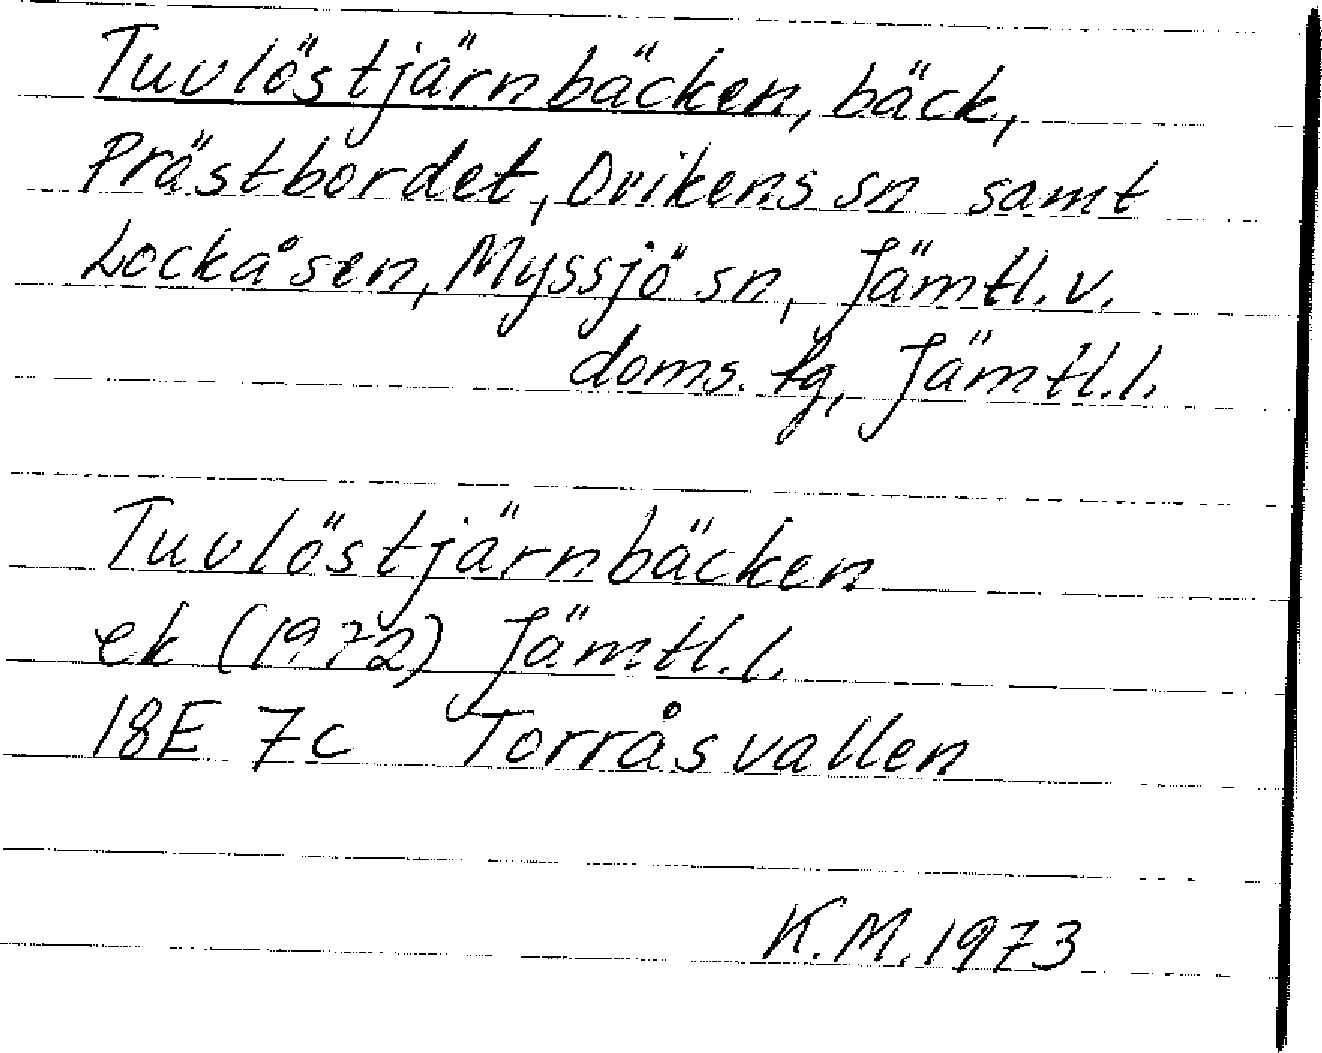 Tuvlöstjärnbäcken, bäck,
Prästbordet, Ovikens sn samt
Lockåsen, Myssjö sn, Jämtl. v.
doms. fg, Jämtl. l.
Tuvlöstjärnbäcken
ek (1972) Jämtl. l.
18E 7c Torråsvallen
K.M. 1973